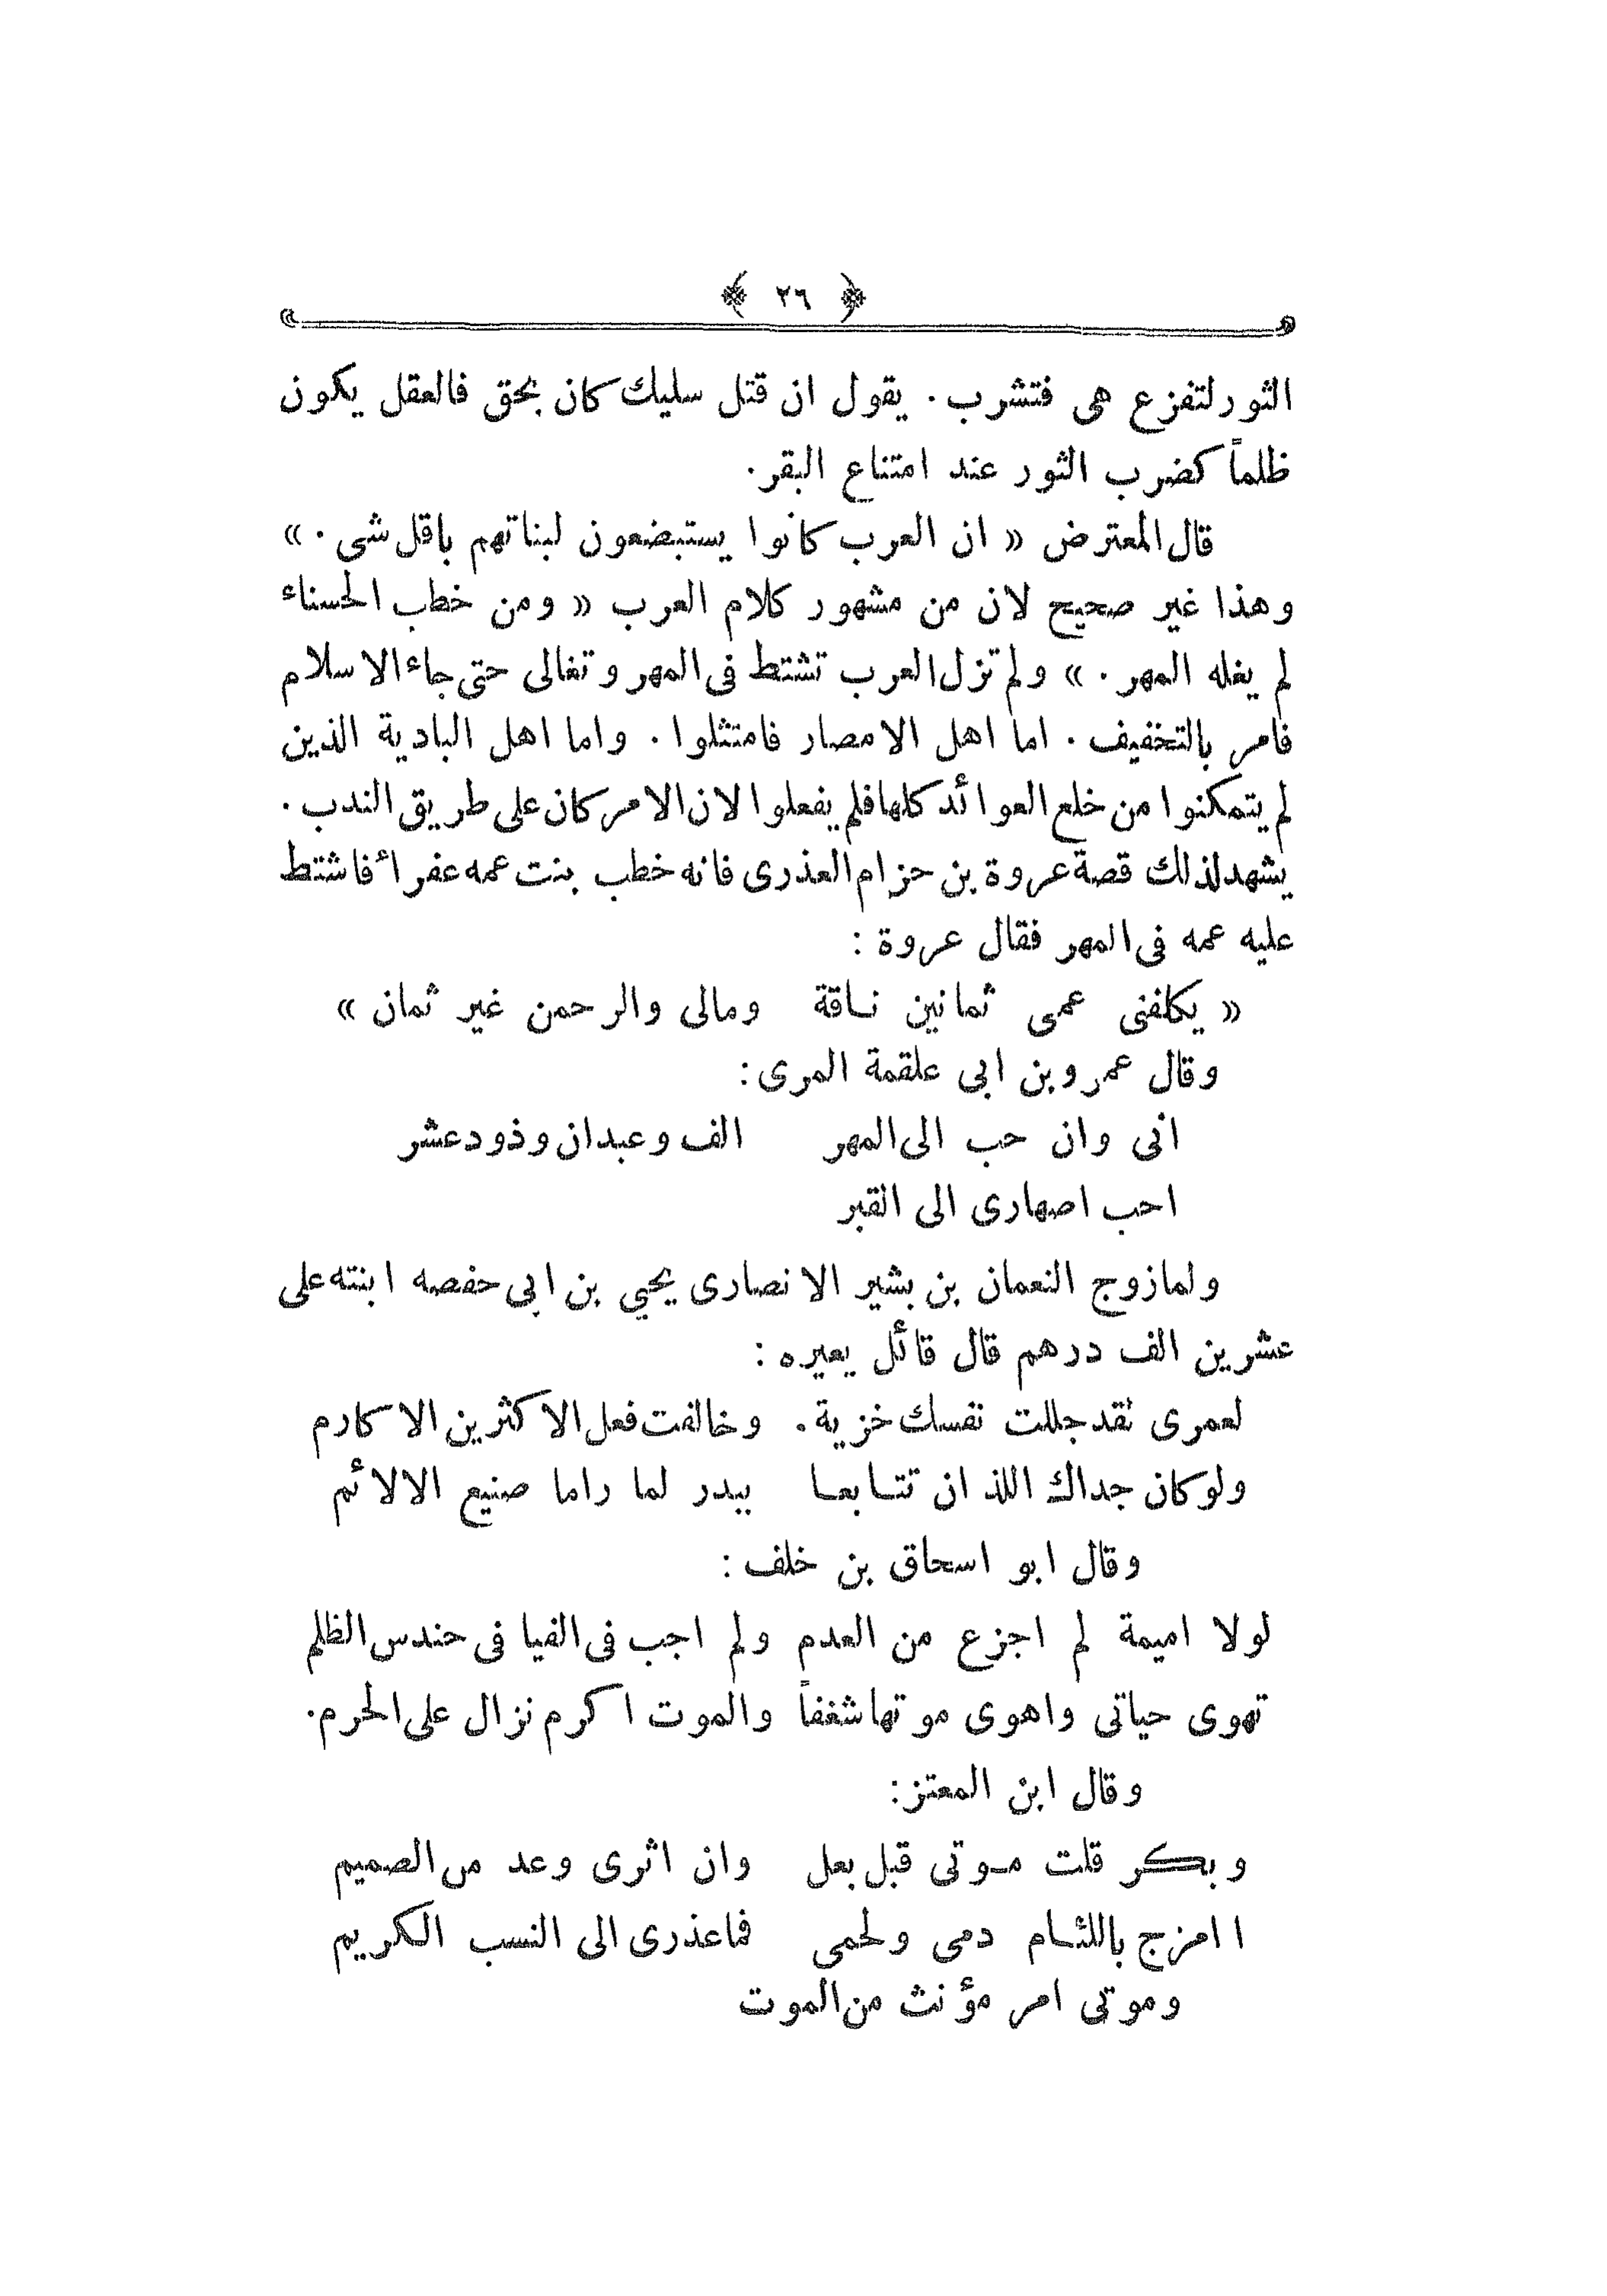 ﴿ ٢٦ ﴾
الثور لتفزع هى فتشرب . يقول ان قتل سليك كان بحق فالعقل يكون
ظلماً كضرب الثور عند امتناع البقر .
قال المعترض « ان العرب كانوا يستبضعون لبناتهم باقل شى . »
وهذا غير صحيح لان من مشهور كلام العرب « ومن خطب الحسناء
لم يغله المهر . » ولم تزل العرب تشتط فى المهر وتغالى حتى جاء الاسلام
فامر بالتخفيف . اما اهل الامصار فامتثلوا . واما اهل البادية الذين
لم يتمكنوا من خلع العوائد كلها فلم يفعلوا لان الامر كان على طريق الندب .
يشهد لذلك قصة عروة بن حزام العذرى فانه خطب بنت عمه عفراء فاشتط
عليه عمه فى المهر فقال عروة :
« يكلفنى عمى ثمانين ناقة ومالى والرحمن غير ثمان »
وقال عمرو بن ابى علقمة المرى :
انى وان حب الى المهر الف وعبدان وذود عشر
احب اصهارى الى القبر
ولما زوج النعمان بن بشير الانصارى يحيي بن ابى حفصه ابنته على
عشرين الف درهم قال قائل يعيره :
لعمرى لقد جللت نفسك خزية . وخالفت فعل الاكثرين الاكارم
ولو كان جداك اللذان تتابعا ببدر لما راما صنيع الالائم
وقال ابو اسحاق بن خلف :
لولا اميمة لم اجزع من العدم ولم اجب فى الفيافى حندس الظلم
تهوى حياتى واهوى موتها شغفاً والموت اكرم نزال على الحرم .
وقال ابن المعتز :
وبكر قلت موتى قبل بعل وان اثرى وعد من الصميم
اامزج باللئام دمى ولحمى فما عذرى الى النسب الكريم
وموتى امر مؤنث من الموت